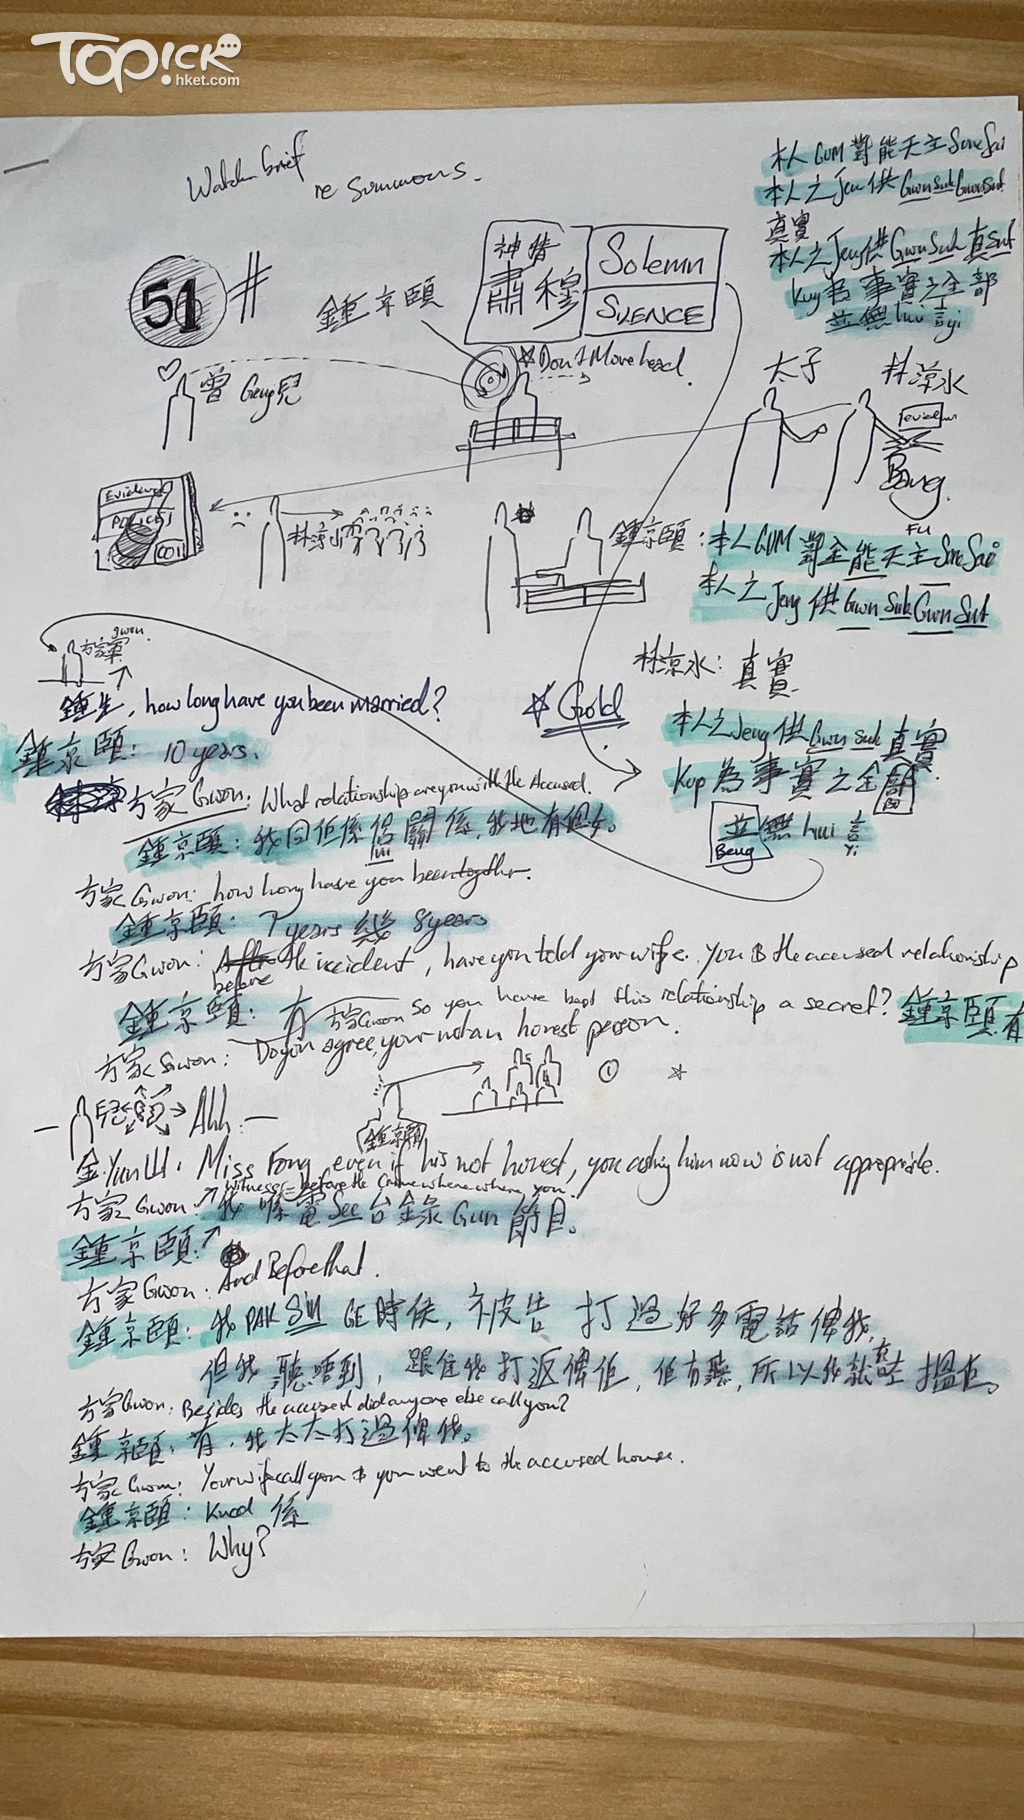 TOPick
hket.com
Watch brief
re Summons.
本人 GUM 對能天主 Sone Sai
本人之 Jen 供 Gwn Suk Gwn Sut
真實
本人之 Jeng 供 Gwn Suk 真 Sut
Kuy 為事實之全部
並無 hui 言 yi
51 #
鍾京頤
神情
肅穆
Solemn
SILENCE
Don't Move head.
曾 Geng 兒
太子
林涼水
Beng.
Evidence
POLICE
林涼水
FU
鍾京頤: 本人 GUM 對全能天主 Sone Sai
本人之 Jeng 供 Gwn Suk Gwn Sut
林涼水: 真實
Gwon.
方家
鍾生, how long have you been married?
Gold
本人之 Jeng 供 Gwn Suk 真實.
鍾京頤: 10 years.
Kup 為事實之全部
方家 Gwon: What relationship are you with the Accused.
鍾京頤: 我同佢係侶關係, 我地有個女。
lui
並無 hui 言
Beng
Yi
方家 Gwon: how long have you been together.
鍾京頤: 7 years 幾 8 years
方家 Gwon: After the incident, have you told your wife. You & the accused relationship
before
鍾京頤: 有
方家 Gwon so you have kept this relationship a secret? 鍾京頤 有
方家 Gwon: Do you agree, your not an honest person.
Ahh.
鍾京頤
金 Yun 山: Miss Fong even if his not honest, you asking him now is not appropriate.
方家 Gwon: witnesses before the crime where where you.
鍾京頤: 我喺電 See 台錄 Gun 節目。
方家 Gwon: And Before that.
鍾京頤: 我 PAK Sui GE 時侯, 被告打過好多電話俾我,
但我聽唔到, 跟住我打返俾佢, 佢冇聽, 所以我就去搵佢。
方家 Gwon: Besides the accused did anyone else call you?
鍾京頤: 有, 我太太打過俾我。
方家 Gwon: Your wife call you & you went to the accused house.
鍾京頤: 係
方家 Gwon: Why?